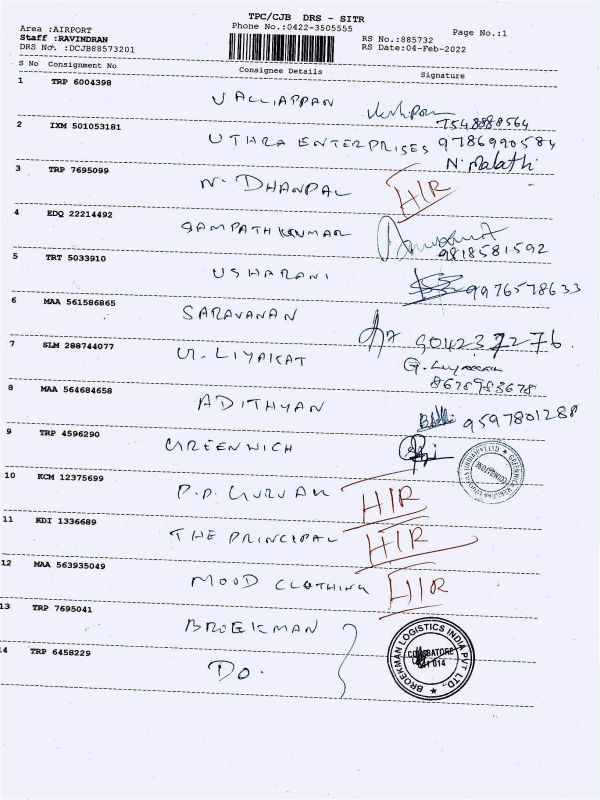 TPC/CJB DRS - SITR
Area :AIRPORT Phone No.:0422-3505555 Page No.:1
Staff :RAVINDRAN RS No.:885732
DRS No. :DCJB88573201 RS Date:04-Feb-2022
S No Consignment No Consignee Details Signature
1 TRP 6004398 V. ALLIAPPAN
7548888564
2 IXM 501053181 UTHRA ENTERPRISES 9786990584
N. Malathi
3 TRP 7695099 N. DHANPAL H/R
4 EDQ 22214492 SAMPATH KUMAR
9818581592
5 TRT 5033910 USHARANI 9976578633
6 MAA 561586865 SARAVANAN 9042372276
7 SLM 288744077 G. LIYAKAT
8678983678
8 MAA 564684658 ADITHYAN 9597801288
9 TRP 4596290 GREENWICH
10 KCM 12375699 P.P. H/R
11 KDI 1336689 THE PRINCIPAL H/R
12 MAA 563935049 MOOD CLOTHING H/R
13 TRP 7695041 BROEKMAN
14 TRP 6458229 DO.
BROEKMAN LOGISTICS INDIA PVT. LTD.,
COIMBATORE